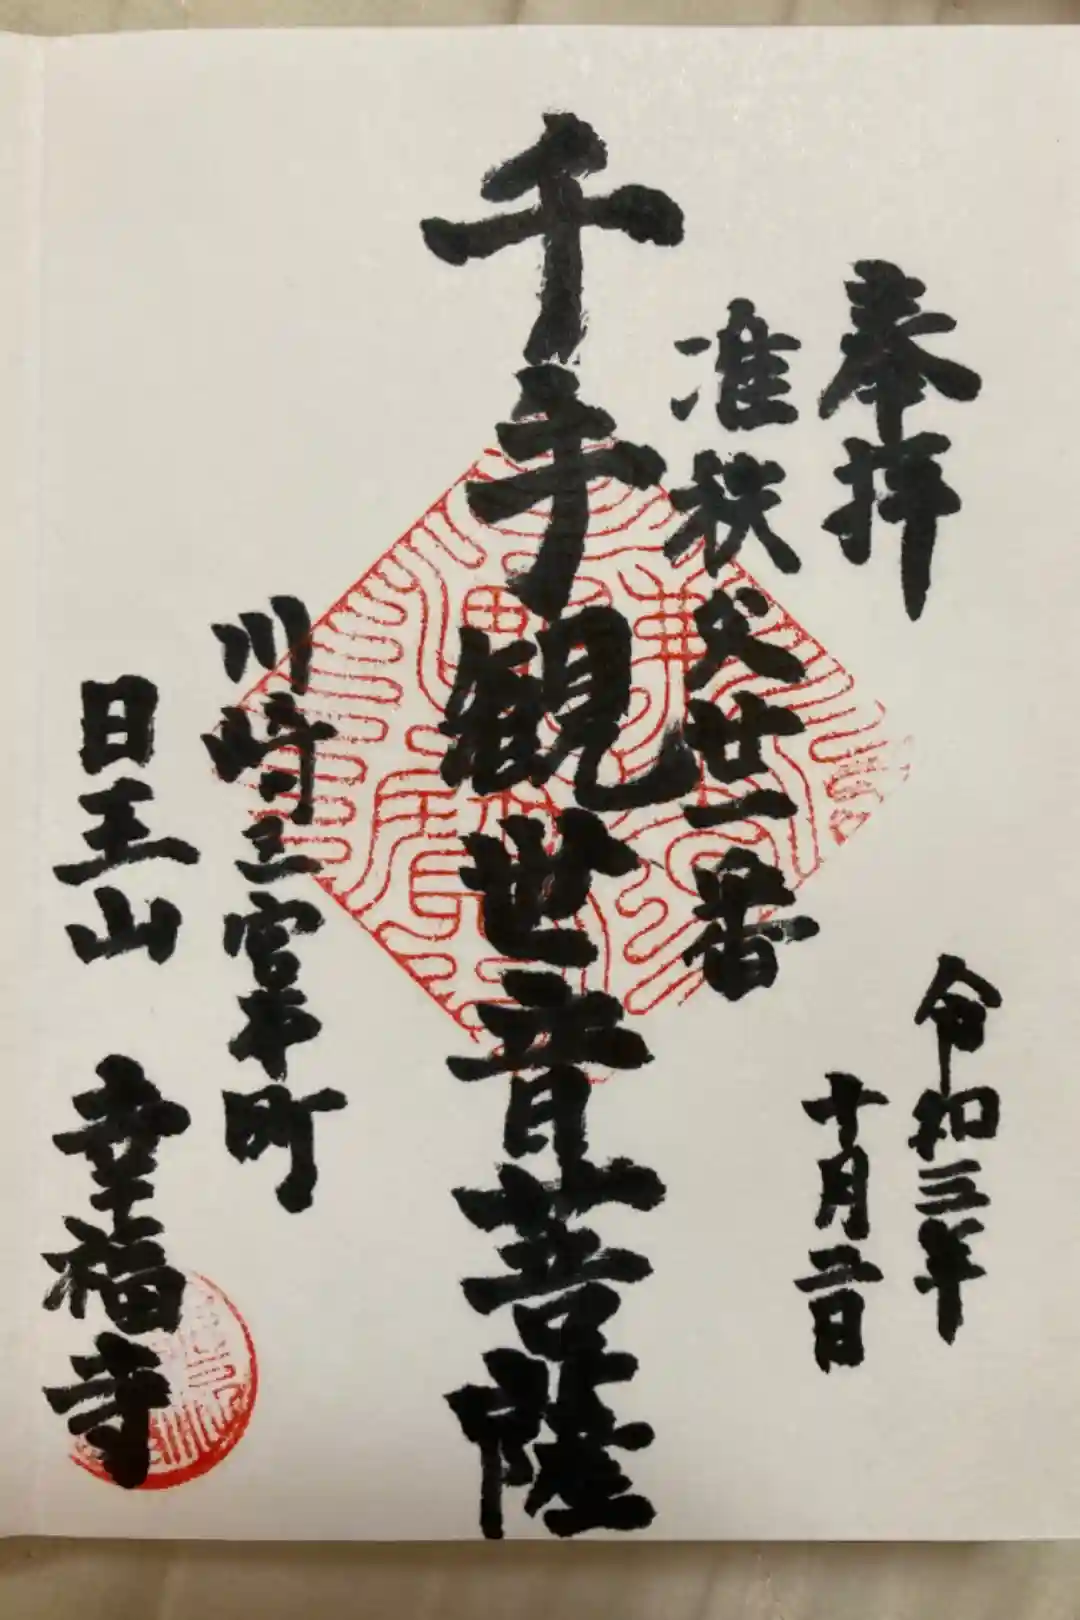 奉拝
令和三年
十月二日
准秩父廿一番
千手観世音菩薩
川崎三宮本町
日王山 幸福寺